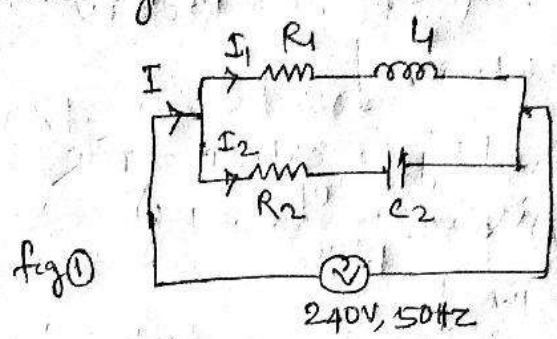 R1 L1
I1
I
I2
R2 C2
fig ①
240V, 50Hz